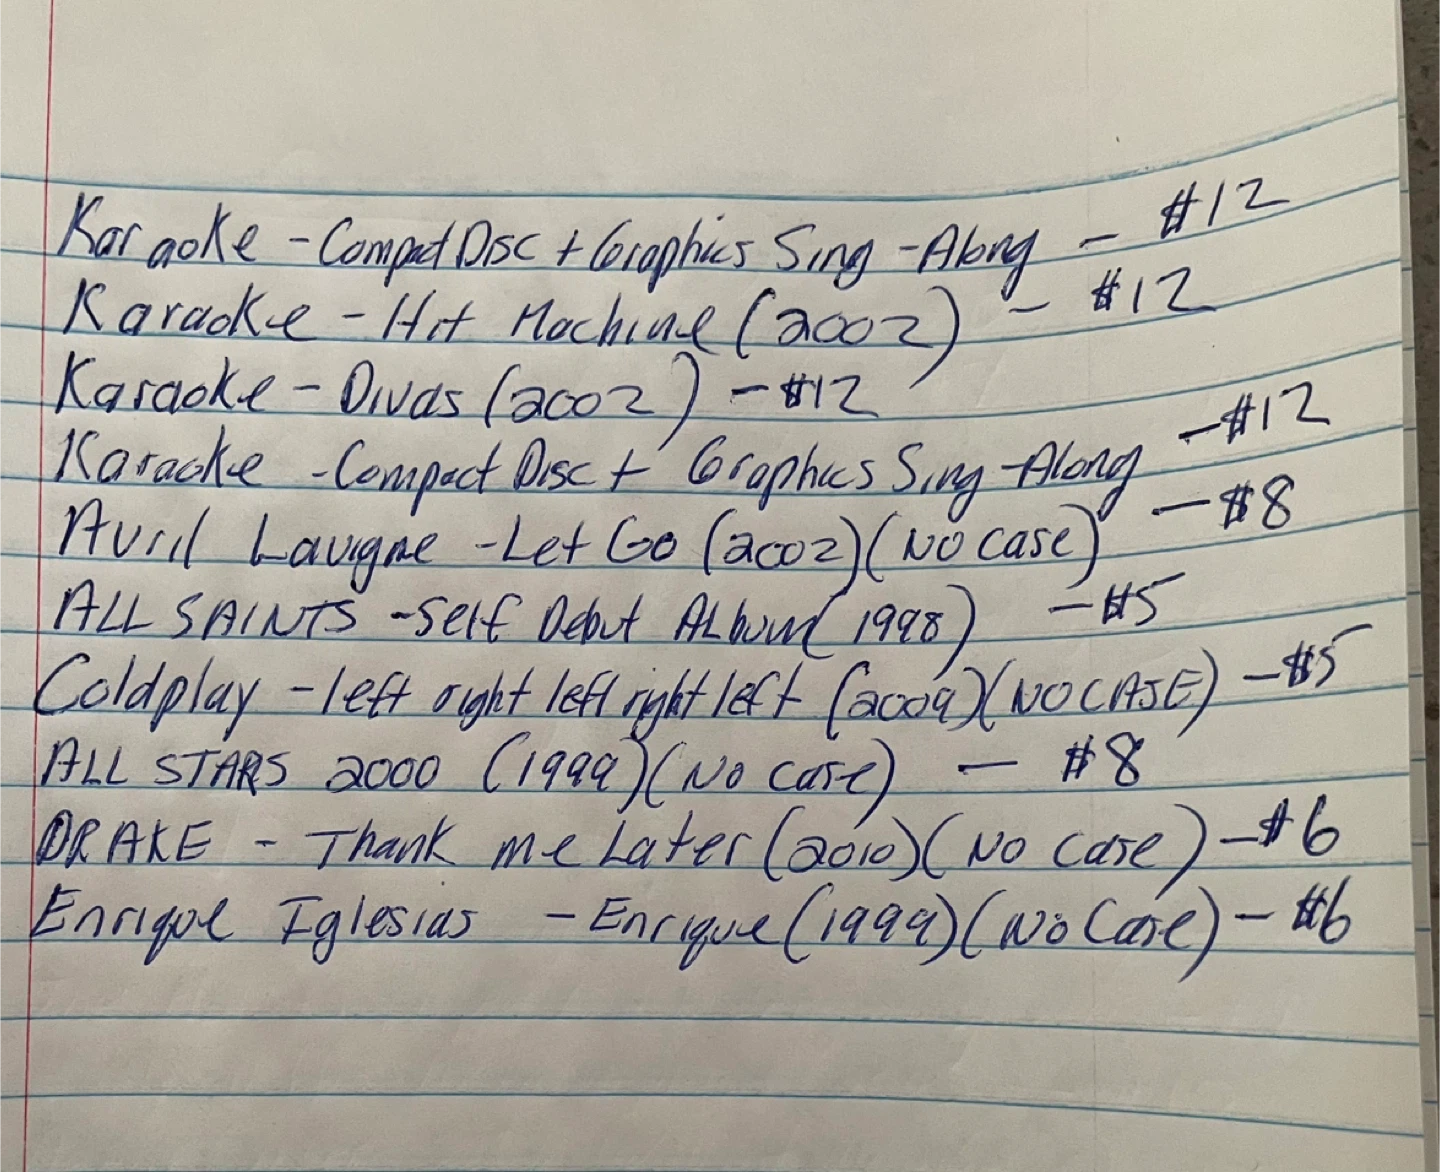 Karaoke - Compact Disc + Graphics Sing-Along - $12
Karaoke - Hit Machine (2002) - $12
Karaoke - Divas (2002) - $12
Karaoke - Compact Disc + Graphics Sing-Along - $12
Avril Lavigne - Let Go (2002) (No Case) - $8
ALL SAINTS - Self Debut Album (1998) - $5
Coldplay - left right left right left (2009) (NO CASE) - $5
ALL STARS 2000 (1999) (No Case) - $8
DRAKE - Thank me Later (2010) (No Case) - $6
Enrique Iglesias - Enrique (1999) (No Case) - $6